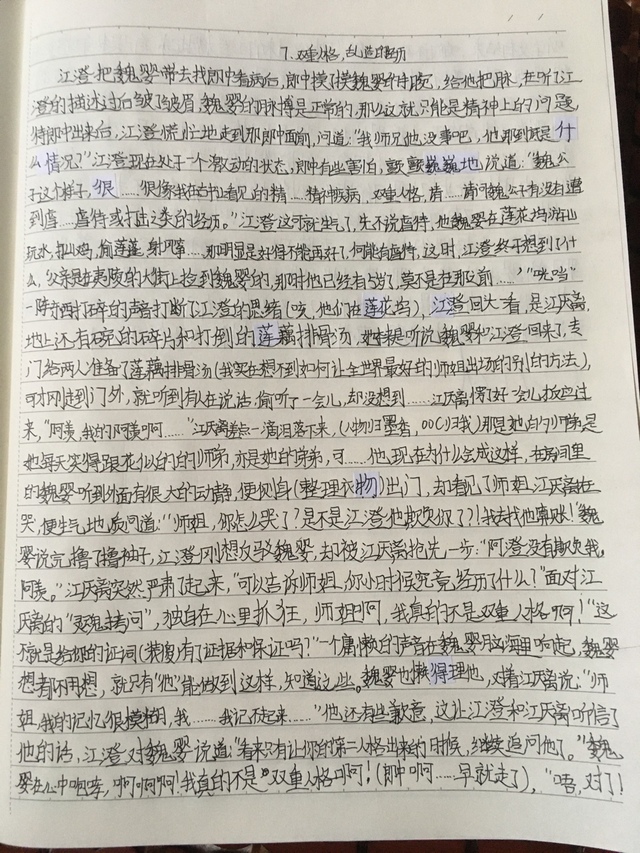 7.双重人格，乱造的经历
江澄把魏婴带去找郎中看病后，郎中摸了摸魏婴的手腕，给他把脉，在听了江
澄的描述过后皱了皱眉，魏婴的脉搏是正常的，那么这就只能是精神上的问题
待郎中出来后，江澄慌忙地走到那郎中面前，问道："我师兄他没事吧，他那到底是什
么情况？"江澄现在处于一个激动的状态，郎中有些害怕，颤颤巍巍地说道："魏公
子这个样子，很……很像我在古书上看见的精……精神疾病，双重人格，请……请问魏公子有没有遭
到虐……虐待或打击之类的经历。"江澄这可就生气了，先不说虐待，他魏婴在莲花坞游山
玩水，打山鸡，偷莲蓬，射风筝……那明显是好得不能再好了，何能有虐待，这时，江澄终于想到了什
么，父亲是在夷陵的大街上捡到魏婴的，那时他已经有5岁了，莫不是在那之前……，"咣当"
一阵东西打碎的声音打断了江澄的思绪(咳，他们在莲花坞)，江澄回头一看，是江厌离，
地上还有碗的碎片和打倒的莲藕排骨汤，她本是听说魏婴和江澄回来了，专
门给两人准备了莲藕排骨汤(我实在想不到如何让全世界最好的师姐出场的别的方法)，
可才刚走到门外，就听到有人在说话，偷听了一会儿，却没想到……江厌离愣了好一会儿才反应过
来，"阿羡，我的阿羡啊……"江厌离差点一滴泪落下来，(人物归墨香，OOC归我)那是她的师弟，是
她每天笑得跟花似的的师弟，亦是她的弟弟，可……他现在为什么会成这样，在房间里
的魏婴听到外面有很大的动静，便侧身(整理衣物)出门，却看见了师姐江厌离在
哭，便生气地质问道："师姐，你怎么哭了？是不是江澄他欺负你了？！我去找他算账！"魏
婴说完撸了撸袖子，江澄刚想反驳魏婴，却被江厌离抢先一步："阿澄没有欺负我，
阿羡。"江厌离突然严肃了起来，"可以告诉师姐，你小时候究竟经历了什么？"面对江
厌离的"灵魂拷问"，独自在心里抓狂，师姐啊，我真的不是双重人格啊！"这
不就是给你的证词(莫傻)有了证据和保证吗？"一个慵懒的声音在魏婴脑海里响起，魏婴
想都不用想，就只有"他"能做到这样，知道这些。魏婴也懒得理他，对着江厌离说："师
姐，我的记忆很模糊，我……我记不起来……"他还有些歉意，这让江澄和江厌离听信了
他的话，江澄对魏婴说道："看来只有让你的第二人格出来的时候，继续追问他了。"魏
婴在心中咆哮，啊啊啊啊！我真的不是双重人格啊！(郎中啊……早就走了)，"唔，对了！